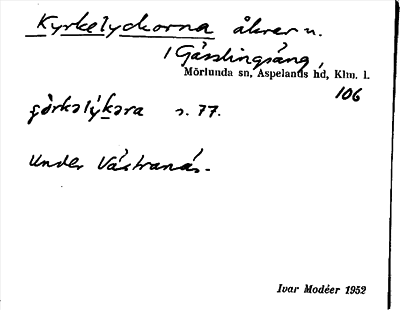 Kyrkelyckorna åkrer n.
i Gässlingsäng,
Mörlunda sn, Aspelands hd, Klm. l.
106
s. 77.
Under Västranäs.
Ivar Modéer 1952